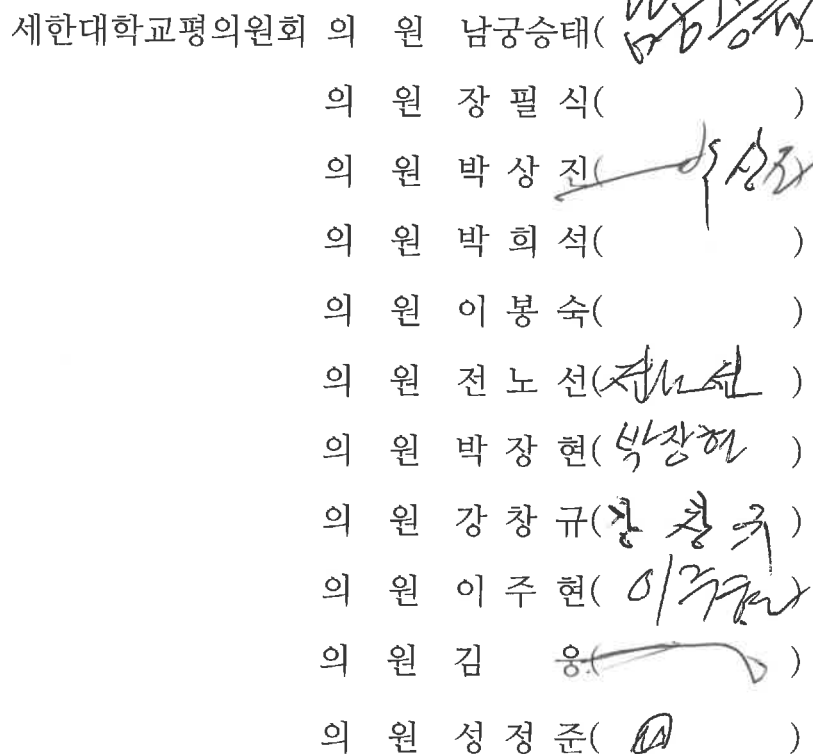 세한대학교평의원회 의 원 남궁승태( 남궁승태)
의 원 장 필 식( )
의 원 박 상 진(
의 원 박 희 석( )
의 원 이 봉 숙( )
의 원 전 노 선(전노선 )
의 원 박 장 현( 박장현 )
의 원 강 창 규(강 창 규 )
의 원 이 주 현( 이주현)
의 원 김 웅( )
의 원 성 정 준( )